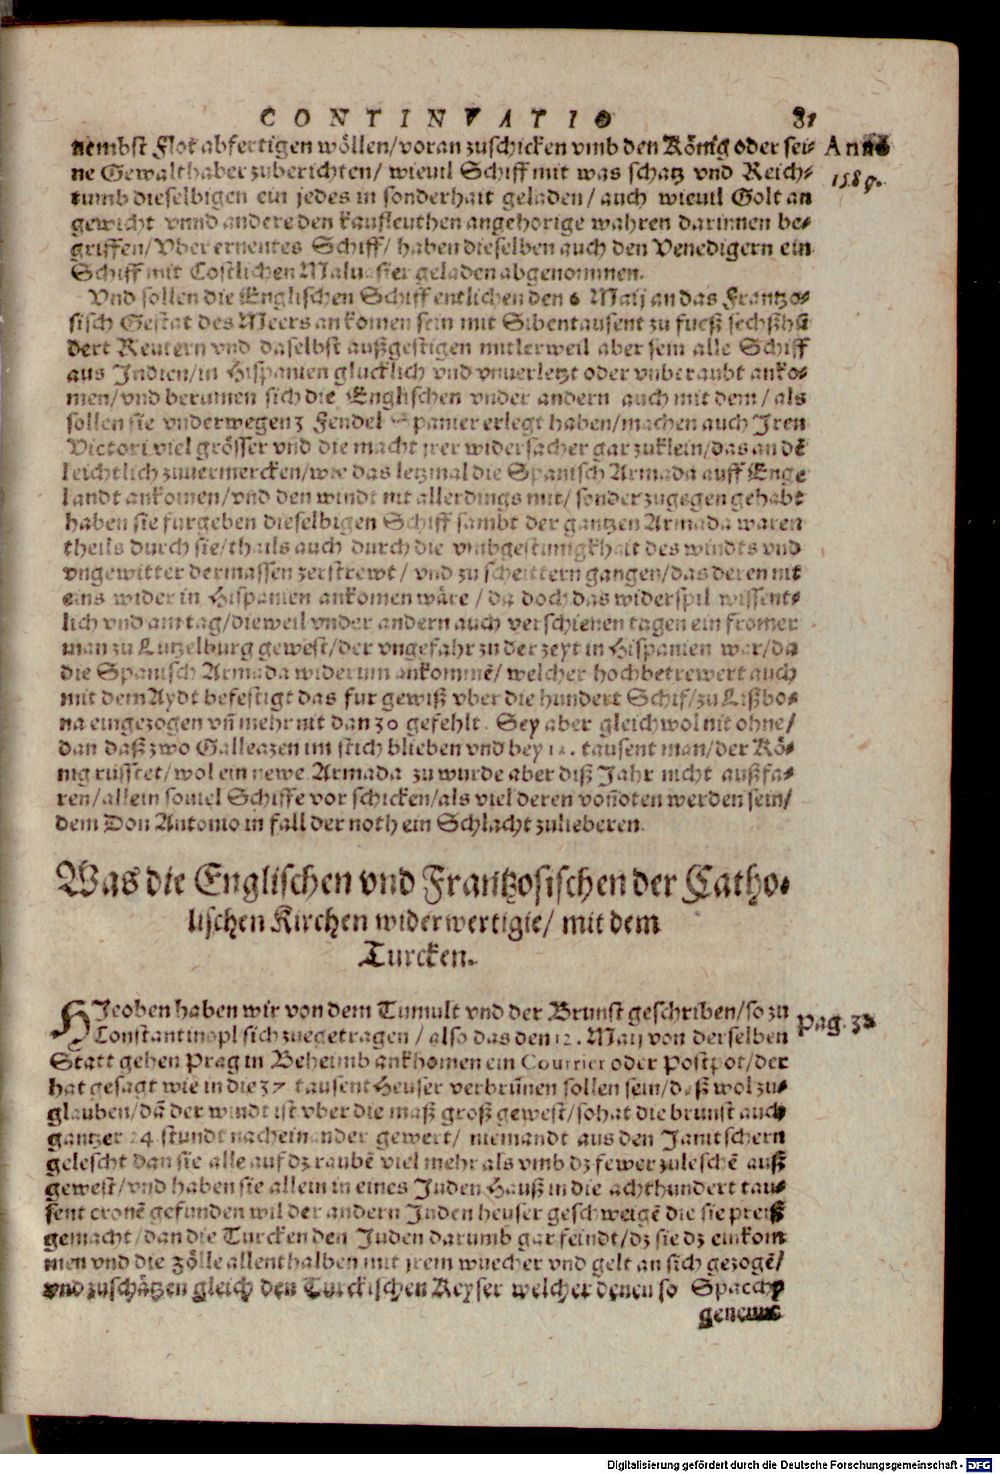 CONTINVATIO 81
nembst Flot abfertigen wöllen/ voran zuschicken vmb den König oder sei- Anno
ne Gewalthaber zuberichten/ wieuil Schiff mit was schatz vnd Reich- 1589.
tumb dieselbigen ein jedes in sonderhait geladen/ auch wieuil Golt an
gewicht vnnd andere den kaufleuthen angehorige wahren darinnen be-
griffen/ Vber ernentes Schiff/ haben dieselben auch den Venedigern ein
Schiff mit Costlichen geladen abgenommen.
Vnd sollen die Englischen Schiff entlichen den 6 Maij an das Frantzo-
sisch Gestat des Meers ankomen sein mit Sibentausent zu fueß sechßhū
dert Reutern vnd daselbst außgestigen mitlerweil aber sein alle Schiff
aus Indien/ in Hispanien glucklich vnd vnuerletzt oder vnberaubt anko-
men/ vnd berumen sich die Englischen vnder andern auch mit dem/ als
sollen sie vnderwegen 3 Fendel Spanier erlegt haben/ machen auch Iren
Victori viel grösser vnd die macht irer widersacher gar zuklein/ das an dē
leichtlich zuuermercken/ wie das letzmal die Spanisch Armada auff Enge
landt ankomen/ vnd den windt nit allerdings mit/ sonder zugegen gehabt
haben sie furgeben dieselbigen Schiff sambt der gantzen Armada waren
theils durch sie/ thails auch durch die vmbgestunigkhait des windts vnd
vngewitter dermassen zerstrewt/ vnd zu scheittern gangen/ das deren nit
eins wider in Hispanien ankomen wäre/ da doch das widerspil wissent-
lich vnd am tag/ dieweil vnder andern auch verschienen tagen ein fromer
man zu Lutzelburg gewest/ der vngefahr zu der zeyt in Hispanien war/ da
die Spanisch Armada widerum ankommē/ welcher hochbetrewert auch
mit dem Aydt befestigt das fur gewiß vber die hundert Schif/ zu Lißbo-
na eingezogen vn̄ mehr nit dan 30 gefehlt. Sey aber gleichwol nit ohne/
dan daß zwo Galleazen im stich blieben vnd bey 12. tausent man/ der Kö-
nig russtet/ wol ein newe Armada zu wurde aber diß Jahr nicht außfa-
ren/ allein souiel Schiffe vor schicken/ als viel deren von̄oten werden sein/
dem Don Antonio in fall der noth ein Schlacht zulieberen.
Was die Englischen vnd Frantzosischen der Catho-
lischen Kirchen widerwertigie/ mit dem
Turcken.
HIeoben haben wir von dem Tumult vnd der Brunst geschriben/ so zu
Constantinopl sich zuegetragen/ also das den 12. Maij von derselben pag. 38
Statt gehen Prag in Beheimb ankhomen ein Courrier oder Postpot/ der
hat gesagt wie in die 37 tausent Heuser verbrun̄en sollen sein/ daß wol zu-
glauben/ dā der windt ist vber die maß groß gewest/ so hat die brunst auch
gantzer 24 stundt nacheinander gewert/ niemandt aus den Janitschern
gelescht dan sie alle auf dz raubē viel mehr als vmb dz fewer zuleschē auß
gewest/ vnd haben sie allein in eines Juden Hauß in die achthundert tau-
sent cronē gefunden wil der andern Juden heuser geschweigē die sie preiß
gemacht/ dan die Turcken den Juden darumb gar feindt/ dz sie dz einkom
men vnd die zölle allenthalben mit jrem wuecher vnd gelt an sich gezogē/
vnd zuschätzen gleich den Turckischen Keyser welcher denen so Spacchy
genennt
Digitalisierung gefördert durch die Deutsche Forschungsgemeinschaft - DFG